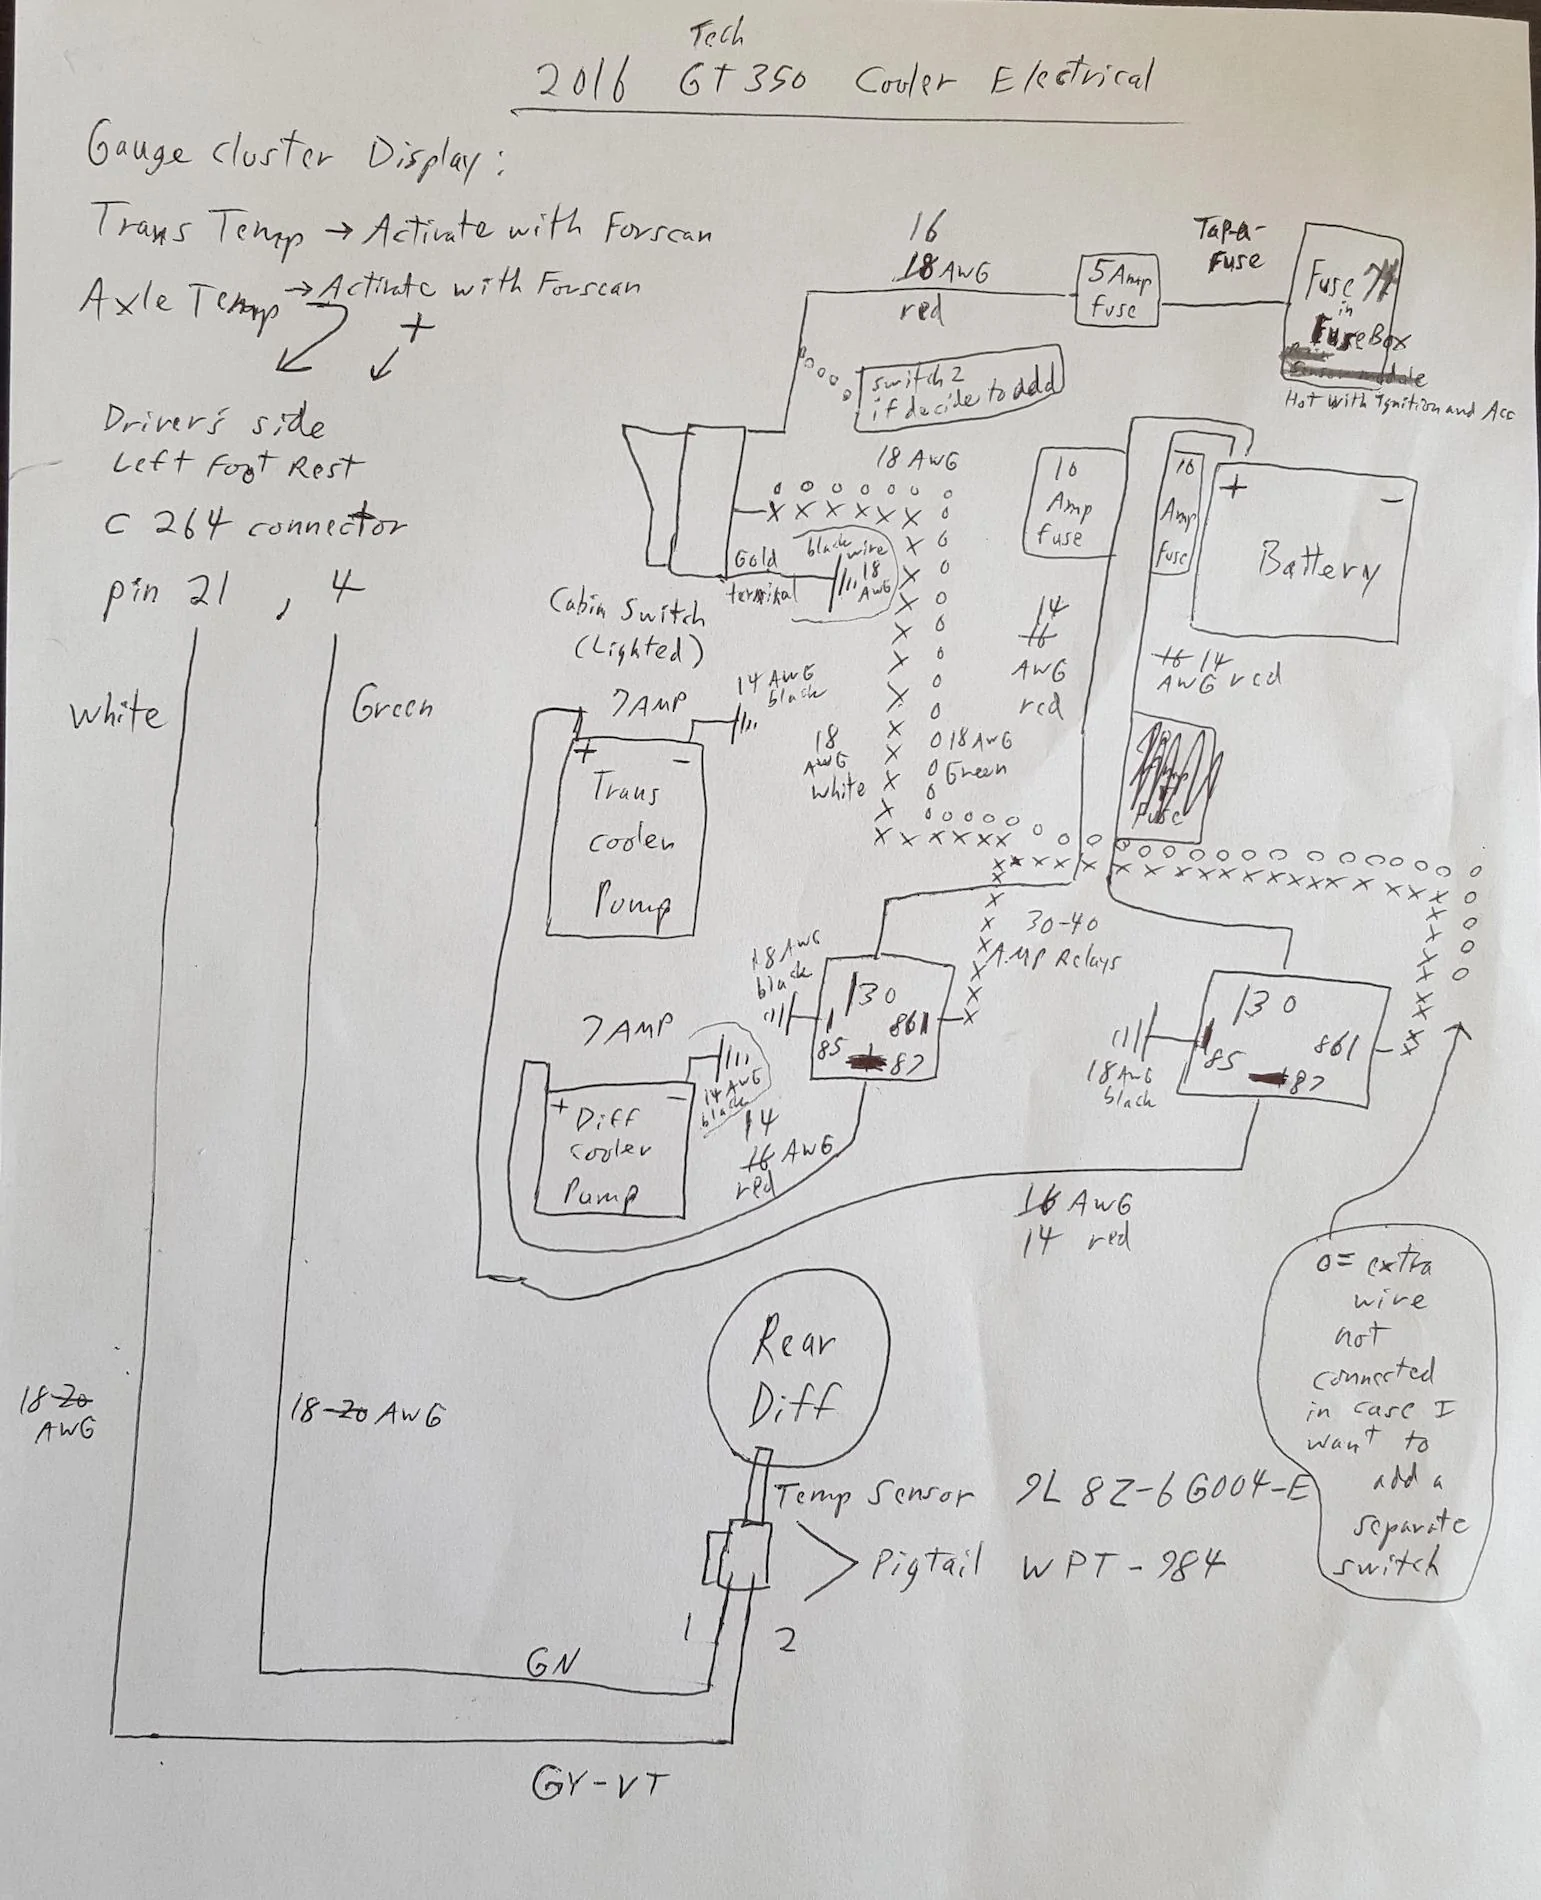 Tech
2016 GT350 Cooler Electrical
Gauge Cluster Display:
Trans Temp → Activate with Forscan
Axle Temp → Activate with Forscan
+
Driver's side
Left Foot Rest
C 264 connector
pin 21 , 4
White
Green
18-20
AWG
18-20 AWG
16
18 AWG
red
5 Amp
fuse
Tap-a-
Fuse
Fuse
in
Fuse Box
Sensor module
Hot with Ignition and Acc
switch 2
if decide to add
18 AWG
Gold
terminal
black wire
18
AWG
Cabin Switch
(Lighted)
10
Amp
fuse
10
Amp
fuse
+ -
Battery
14
16
AWG
red
16 14
AWG red
fuse
7 AMP
14 AWG
black
+ -
Trans
cooler
Pump
18
AWG
white
18 AWG
Green
30-40
AMP Relays
18 AWG
black
130
861
85
87
18 AWG
black
130
861
85
87
7 AMP
14 AWG
black
+ -
Diff
cooler
Pump
14
16 AWG
red
16 AWG
14 red
o= extra
wire
not
connected
in case I
want to
add a
separate
switch
Rear
Diff
Temp Sensor 9L8Z-6G004-E
Pigtail WPT-984
1
2
GN
GY-VT